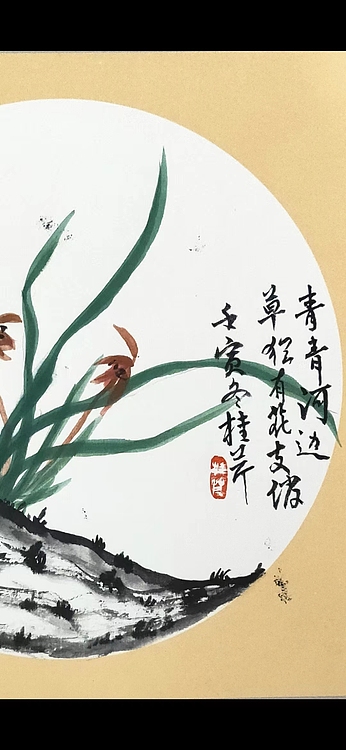 青青河边
草犹有花支俏
壬寅冬桂芹
桂芹